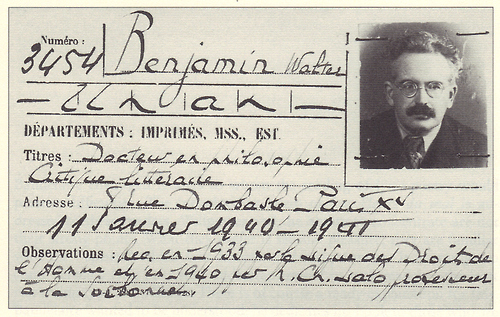 Numéro :
3454 Benjamin Walter
— Un | an | —
DÉPARTEMENTS : IMPRIMÉS, MSS., EST.
Titres : Docteur en philosophie
Critique litteraire
Adresse : rue Dombasle Paris XV
11 Janvier 1940 -
Observations : en 1933 la Ligue des Droits de
l'Homme et en 1940 par professeur
à la Sorbonne.